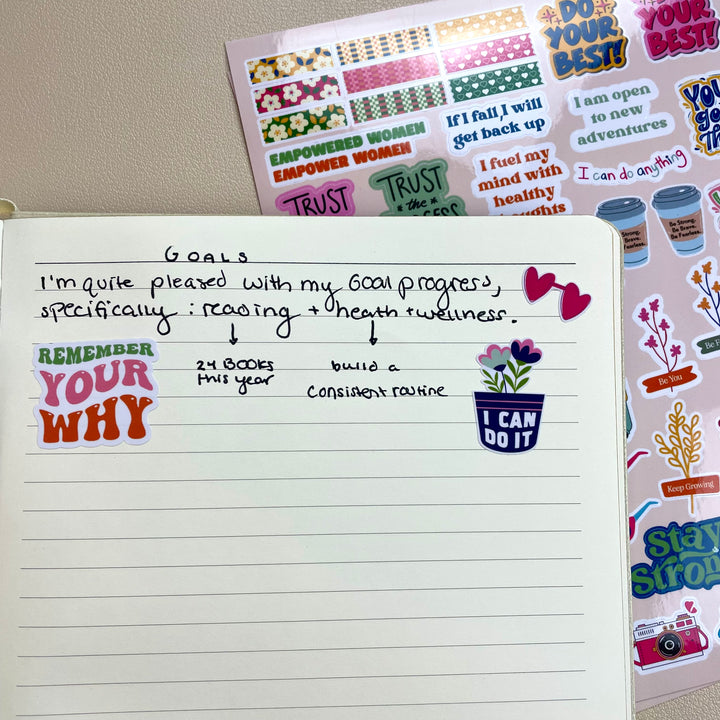 DO
YOUR
BEST!
YOUR
BEST!
If I fall, I will
get back up
I am open
to new
adventures
EMPOWERED WOMEN
EMPOWER WOMEN
I fuel my
mind with
healthy
I can do anything
TRUST
TRUST
the
Be Strong.
Be Brave.
Be Fearless.
GOALS
I'm quite pleased with my Goal progress,
specifically : reading + health + wellness.
24 BOOKS
this year
build a
consistent routine
REMEMBER
YOUR
WHY
I CAN
DO IT
Be You
Keep Growing
Stay